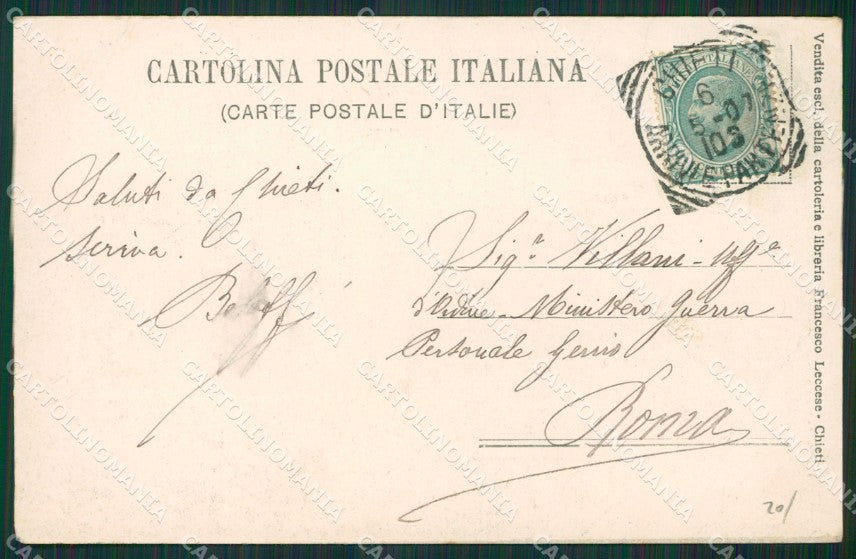 CARTOLINA POSTALE ITALIANA
(CARTE POSTALE D'ITALIE)
CHIETI
6
5-01
103
ARRIVI E PARTENZE
Saluti da Chieti.
Scriva.
Sigr Villani - Uffe
d'Ordine - Ministero Guerra
Personale Genio
Roma
Vendita escl. della cartoleria e libreria Francesco Leccese - Chieti
20/
CARTOLINOMANIA